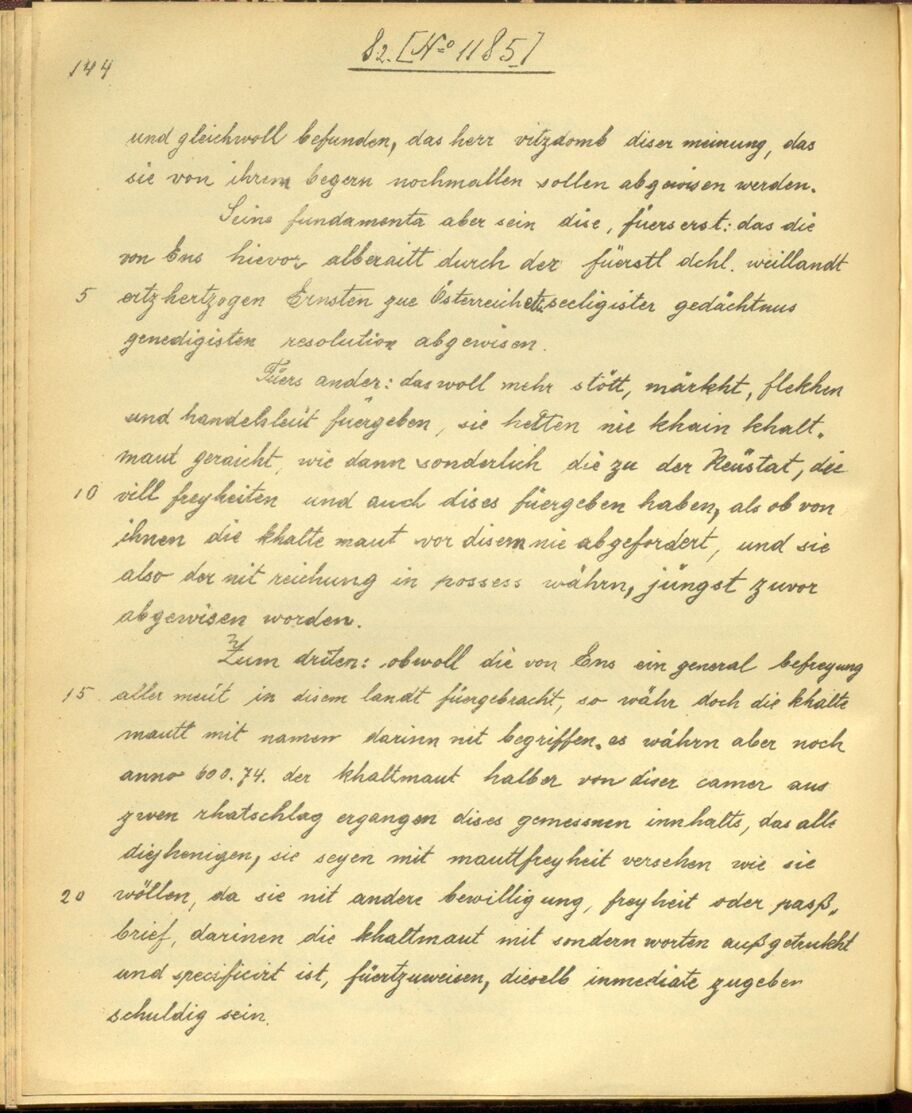 82. [No 1185]
144
und gleichwoll befunden, das herr vitzdomb diser meinung, das
sie von ihrem begern nochmallen sollen abgewisen werden.
Seine fundamenta aber sein dise, füerserst: das die
von Ens hievor alberaitt durch der füerstl dchl. weillandt
5 ertzhertzogen Ernsten zue Österreich etc. seeligister gedächtnus
genedigisten resolution abgewisen.
Füers ander: das woll mehr stött, märkht, flekhen
und handelsleüt füergeben, sie hetten nie khain khalt-
maut geraicht, wie dann sonderlich die zu der Neüstat, die
10 vill freyheiten und auch dises füergeben haben, als ob von
ihnen die khalte maut vor disem nie abgefordert, und sie
also der nit reichung in possess währn, jüngst zuvor
abgewisen worden.
Zum driten: obwoll die von Ens ein general befreyung
15 aller meüt in disem landt füergebracht, so währ doch die khalte
mautt mit namen darinn nit begriffen. es währn aber noch
anno 74. der khaltmaut halber von diser camer aus
zwen rhatschlag ergangen dises gemessnen innhalts, das alle
diejhenigen, sie seyen mit mauttfreyheit versehen wie sie
20 wöllen, da sie nit andere bewilligung, freyheit oder pasß-
brief, darinen die khaltmaut mit sondern worten außgetrukht
und specificirt ist, füertzuweisen, dieselb inmediate zugeben
schuldig sein.